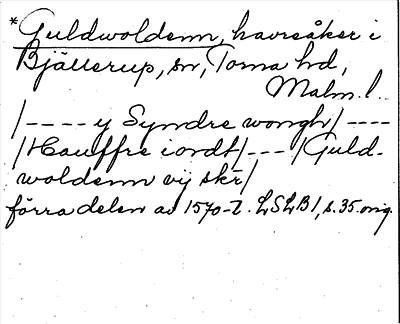 * Guldwoldenn, havreåker i
Bjällerup, sn, Torna hd,
Malm. l.
/---- y Syndre wongh/----
/Hauffre iordt/---/Guld-
woldenn vij skr/
förra delen av 1570-t. LSLB1, s. 35. orig.